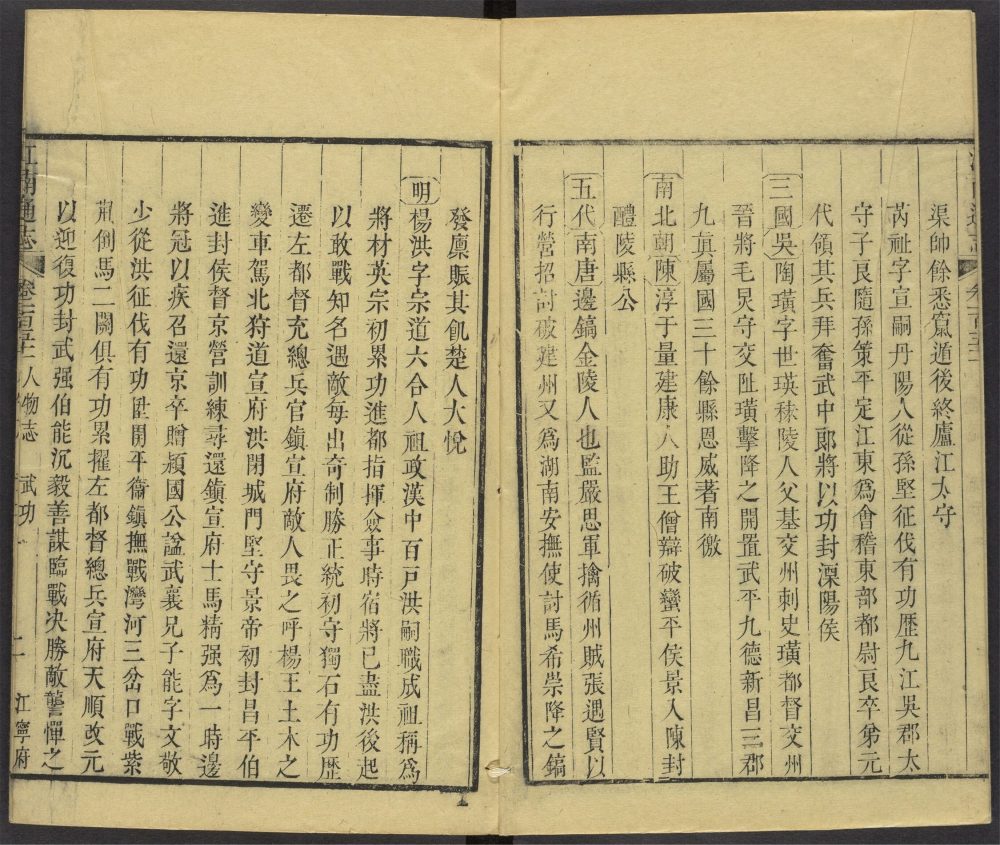 渠帥餘悉竄遁後終廬江太守
芮祉字宣嗣丹陽人從孫堅征伐有功歷九江吳郡太
守子良隨孫策平定江東爲會稽東部都尉良卒弟元
代領其兵拜奮武中郎將以功封溧陽侯
三國吳陶璜字世瑛秣陵人父基交州刺史璜都督交州
晉將毛炅守交阯璜擊降之開置武平九德新昌三郡
九真屬國三十餘縣恩威著南徼
南北朝陳淳于量建康人助王僧辯破蠻平侯景入陳封
醴陵縣公
五代南唐邊鎬金陵人也監嚴思軍擒循州賊張遇賢以
行營招討破建州又爲湖南安撫使討馬希崇降之鎬
發廩賑其飢楚人大悅
明楊洪字宗道六合人祖政漢中百戶洪嗣職成祖稱爲
將材英宗初累功進都指揮僉事時宿將已盡洪後起
以敢戰知名遇敵每出奇制勝正統初守獨石有功歷
遷左都督充總兵官鎮宣府敵人畏之呼楊王土木之
變車駕北狩道宣府洪閉城門堅守景帝初封昌平伯
進封侯督京營訓練尋還鎮宣府士馬精强爲一時邊
將冠以疾召還京卒贈潁國公諡武襄兄子能字文敬
少從洪征伐有功陞開平衞鎮撫戰灣河三岔口戰紫
荆倒馬二關俱有功累擢左都督總兵宣府天順改元
以迎復功封武强伯能沉毅善謀臨戰决勝敵讋憚之
江南通志 卷一百五十二 人物志 武功一 二 江寧府